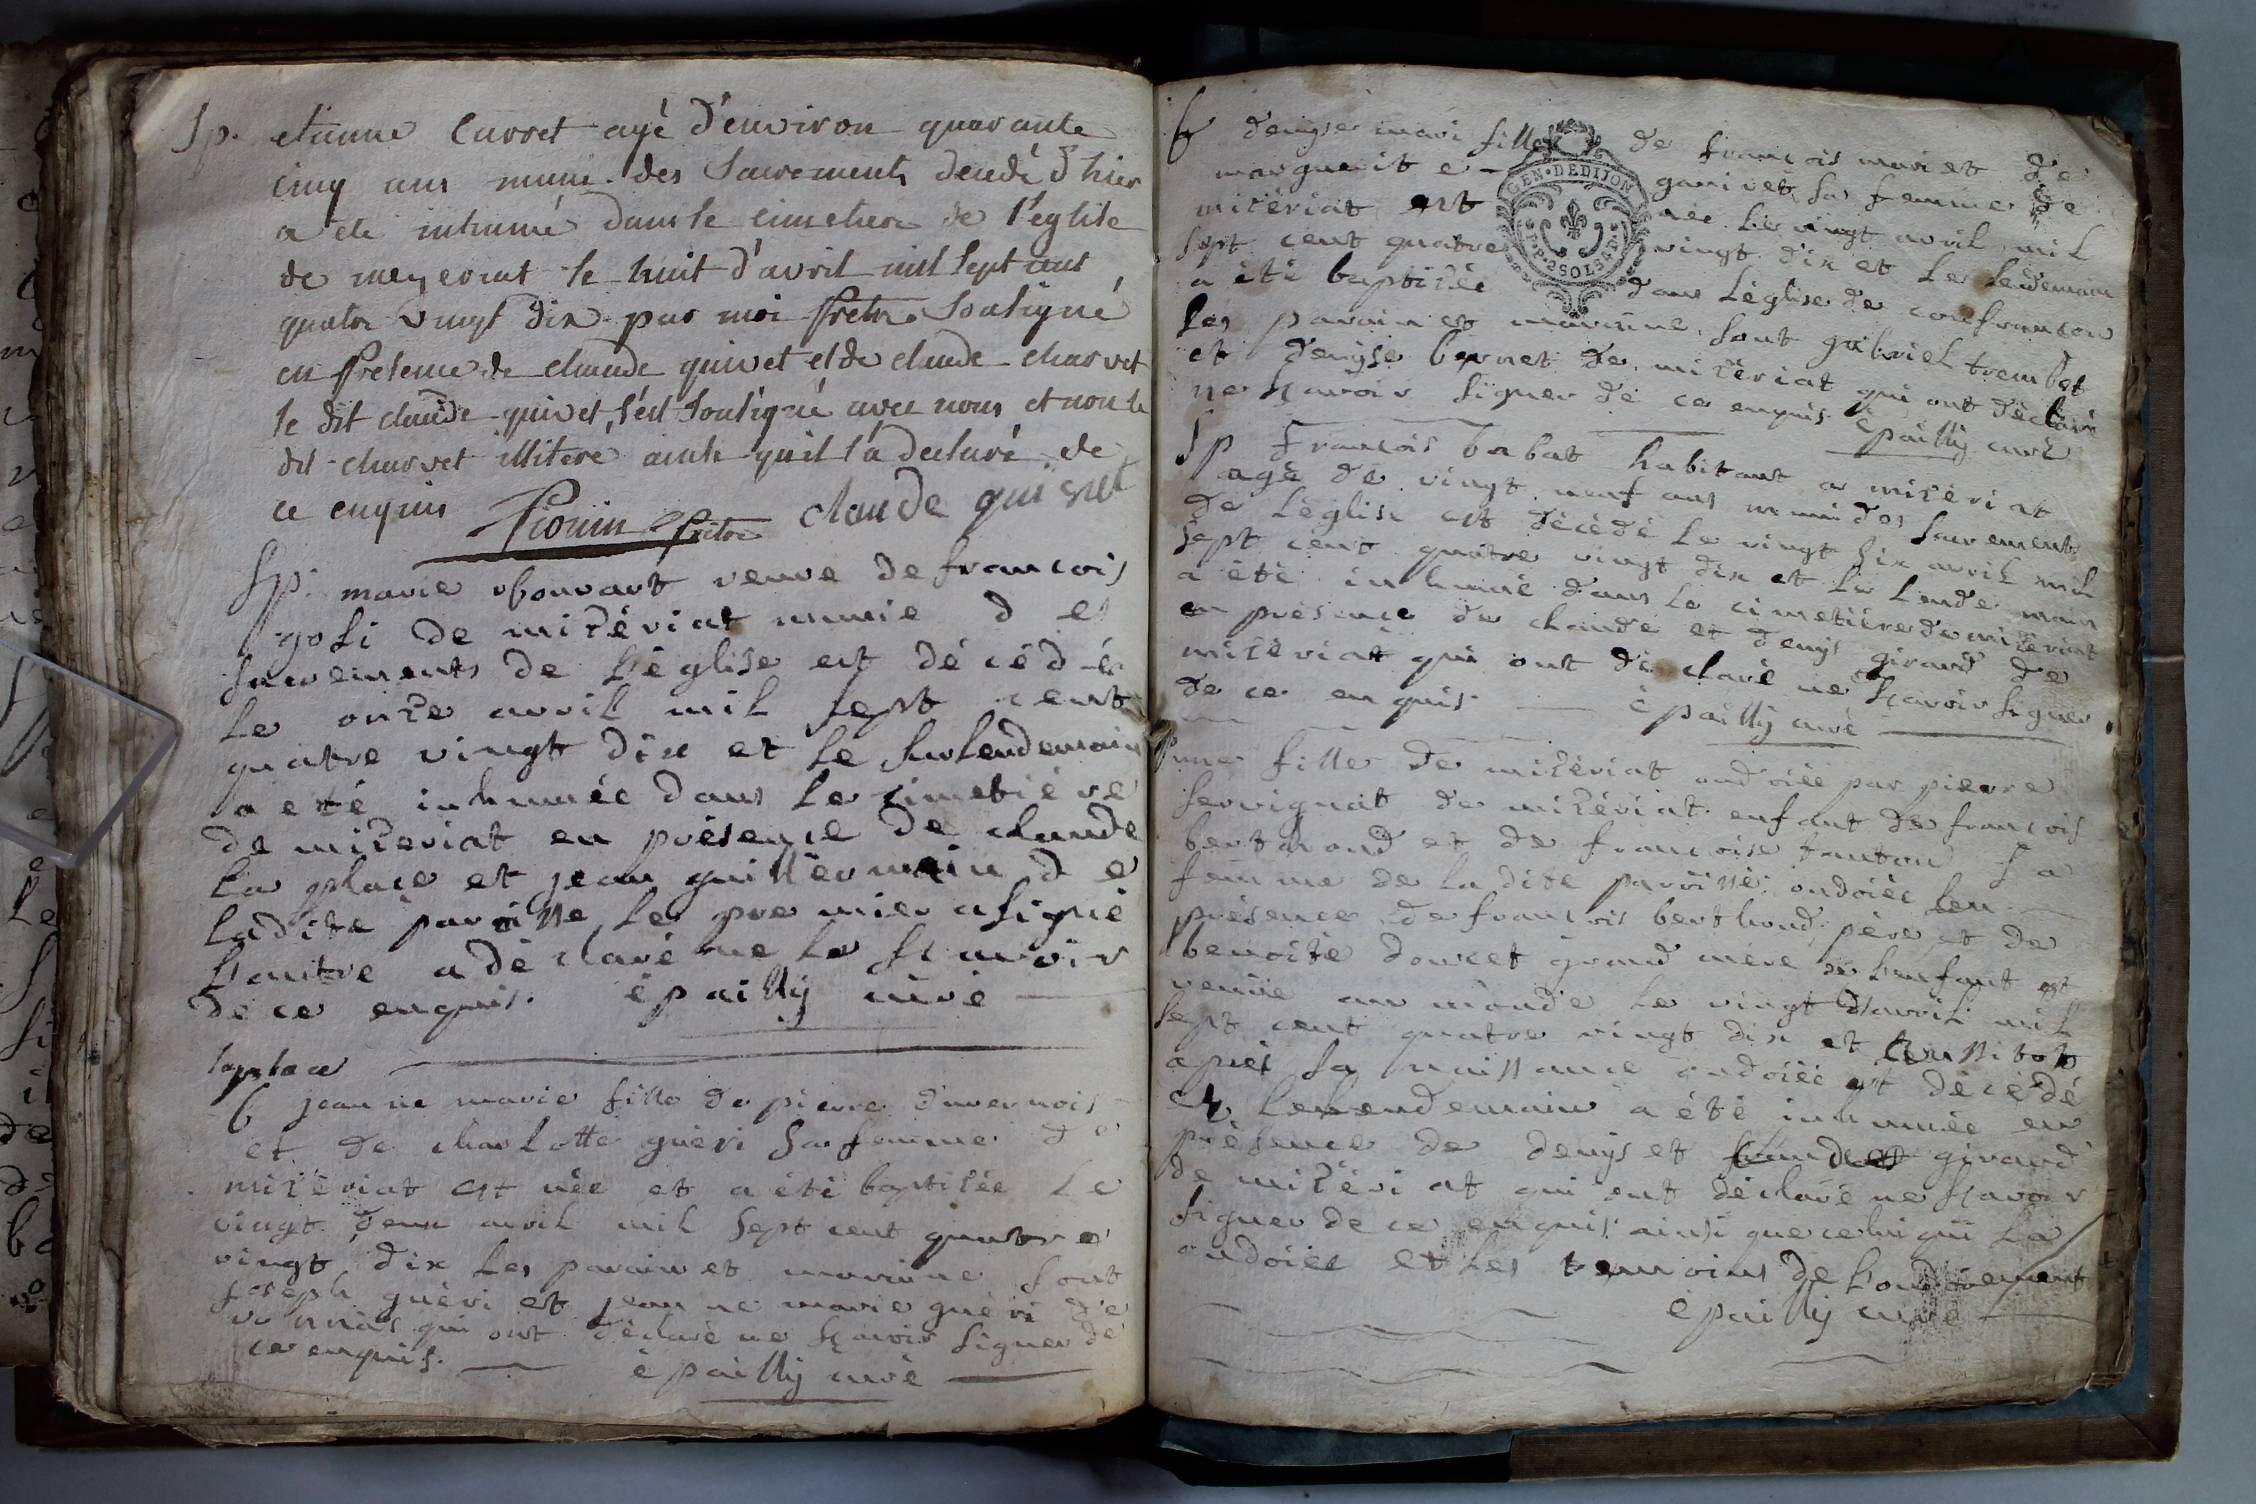 Sp. etienne Carret agé d'environ quarante
cinq ans muni des Sacrements decedé d'hier
a été inhumé dans le cimetiere de l'eglise
de mezeriat le huit d'avril mil sept cent
quatre vingt dix par moi pretre soutigné
en presence de claude quivet et de claude charvet
le dit claude quivet s'est soutigné avec nous et non le
dit charvet illiteré ainsi quil l'a declaré de
ce enquis pretre claude quivet
Sp. marie veuve de francois
goli de mizériat munie des
sacrements de l'église est décédée
le onze avril mil sept cent
quatre vingt dix et le surlendemain
a eté inhumée dans le cimetiére
de mizeriat en présence de claude
la place et jean guillermin de
ladite paroisse le premier a signé
l'autre a déclaré ne le scavoir
de ce enquis. épailly curé
laplace
b jeanne marie fille de pierre duvernois
et de charlotte guéri sa femme de
mizériat est née et a été baptizée le
vingt deux avril mil sept cent quatre
vingt dix les parain et maraine sont
joseph guéri et jeanne marie guéri de
vonnas qui ont déclaré ne sçavoir signer de
ce enquis. épailly curé
b denyse mari fille de francois mari et de
marguerite ganivet sa femme de
GEN. DE DIJON
mizériat est née le vingt avril mil
sept cent quatre vingt dix et le lendemain
P.P. 2 SOLS 4 D.
a été baptizée dans l'église de confrancon
les parain et maraine sont gabriel trembet
et denyse bernet de mizériat qui ont déclaré
ne sçavoir signer de ce enquis. épailly curé
Sp francois babat habitant a mizériat
agé de vingt neuf ans muni des sacrements
de l'église est décédé le vingt six avril mil
sept cent quatre vingt dix et le lendemain
a été inhumé dans le cimetiére de mizériat
en présence de claude et denys girard de
mizériat qui ont déclaré ne sçavoir signer
de ce enquis. épailly curé
une fille de mizériat ondoiée par pierre
servignat de mizériat enfant de francois
berthoud et de francoise fanton sa
femme de la dite paroisse, ondoiée en
présence de francois berthoud père et de
benoite doucet grand mére de l'enfant est
venüe au monde le vingt d'avril mil
sept cent quatre vingt dix et aussitot
apres sa naissance ondoiée est décédé
et le lendemain a été inhumée en
présence de denys et claude girard
de mizériat qui ont déclaré ne sçavoir
signer de ce enquis ainsi que celui qui l'a
ondoiée et les temoins de l'ondoiement
épailly curé